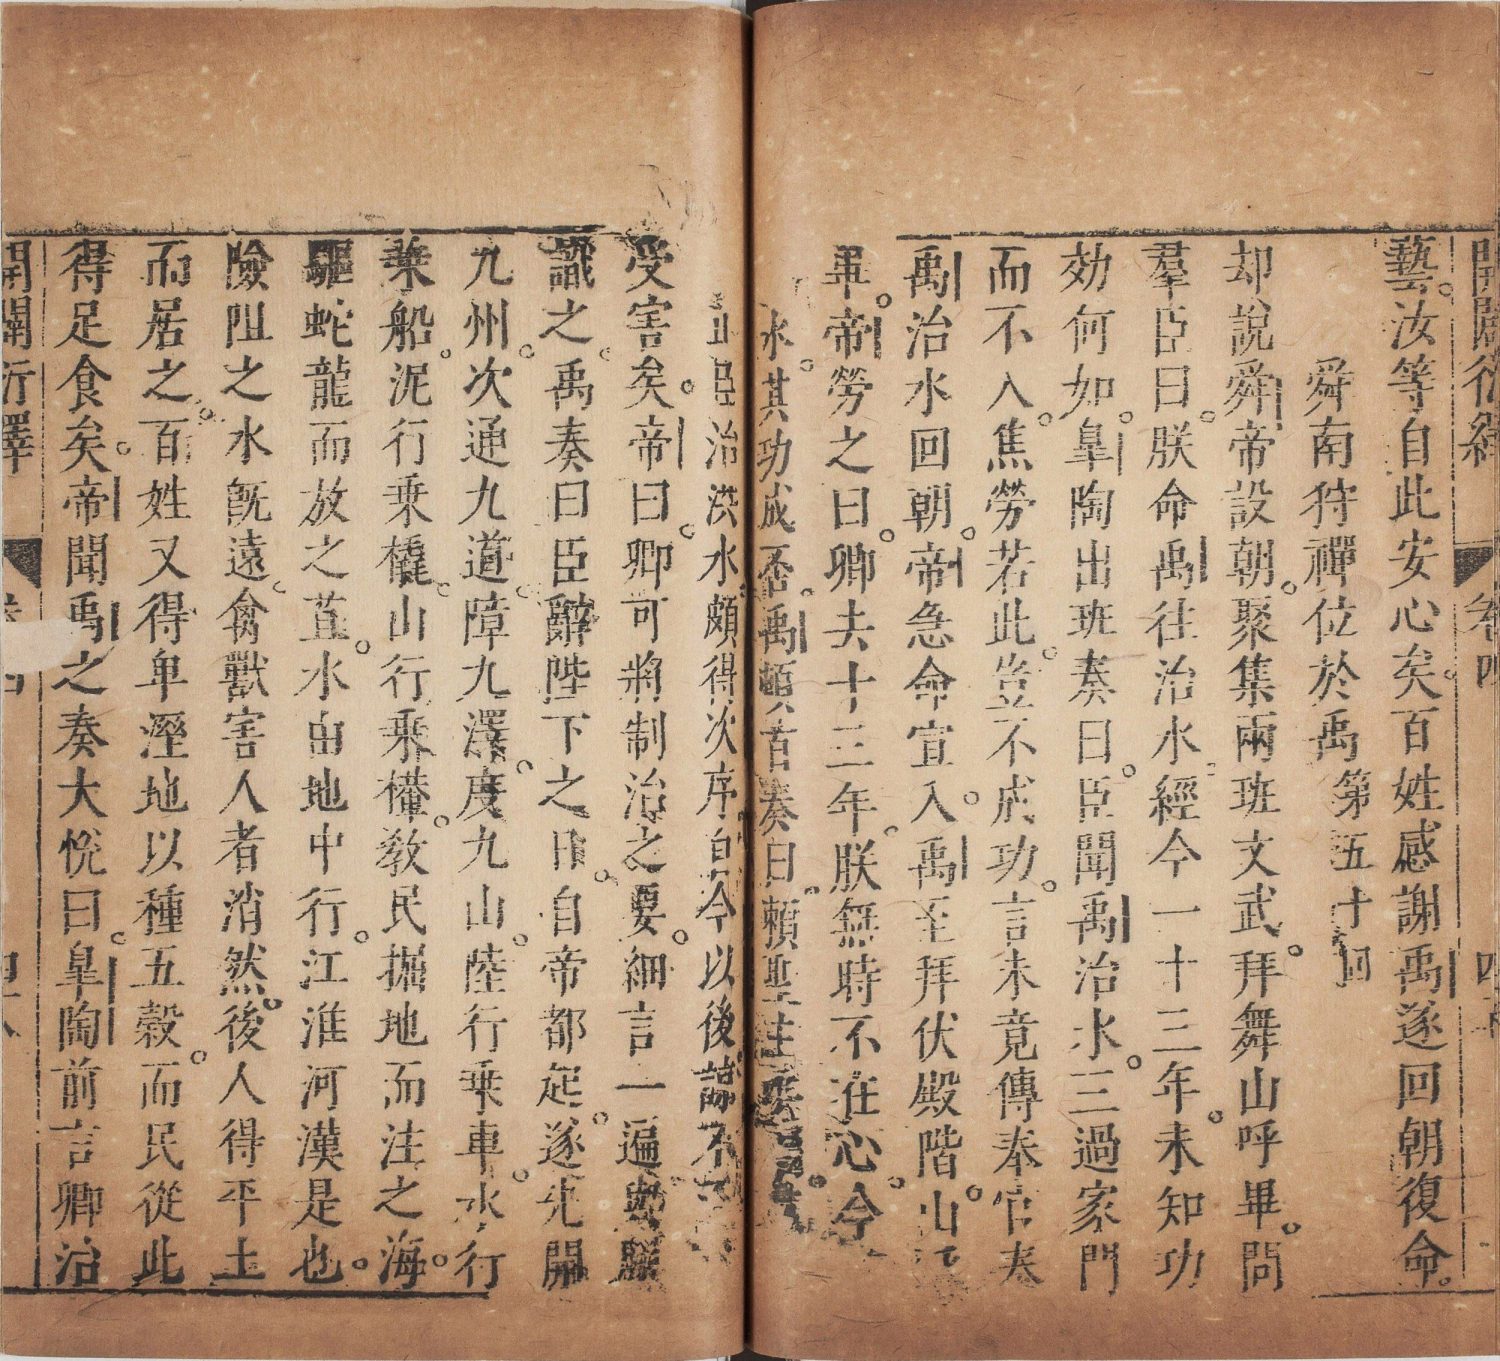 開闢衍繹 卷四 四
藝汝等自此安心矣百姓感謝禹遂回朝復命
舜南狩禪位於禹 第五十回
却說舜帝設朝聚集兩班文武拜舞山呼畢問
羣臣曰朕命禹往治水經今一十三年未知功
効何如臯陶出班奏曰臣聞禹治水三過家門
而不入焦勞若此豈不成功言未竟傳奉官奏
禹治水回朝帝急命宣入禹至拜伏殿階山
畢帝勞之曰卿去十三年朕無時不在心今
水其功成否禹頓首奏曰賴聖主
臣治洪水頗得次序自今以後諒不
受害矣帝曰卿可將制治之要細言一遍與朕
識之禹奏曰臣辭陛下之日自帝都起遂先開
九州次通九道障九澤度九山陸行乘車水行
乘船泥行乘橇山行乘檋敎民掘地而注之海
驅蛇龍而放之菹水由地中行江淮河漢是也
險阻之水旣遠禽獸害人者消然後人得平土
而居之百姓又得卑溼地以種五穀而民從此
得足食矣帝聞禹之奏大悅曰臯陶前言卿治
開闢衍繹